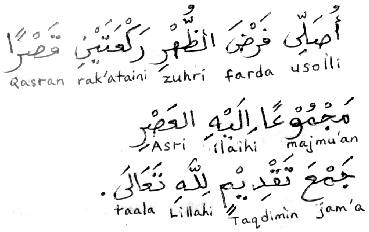 أُصَلِّى فَرْضَ الظُّهْرِ رَكْعَتَيْنِ قَصْرًا
Qasran rak'ataini zuhri farda usolli
مَجْمُوْعًا اِلَيْهِ العَصْرِ
Asri ilaihi majmu'an
جَمْعَ تَقْدِيْمٍ لِلّٰهِ تَعَالَى.
taala Lillahi Taqdimin jam'a